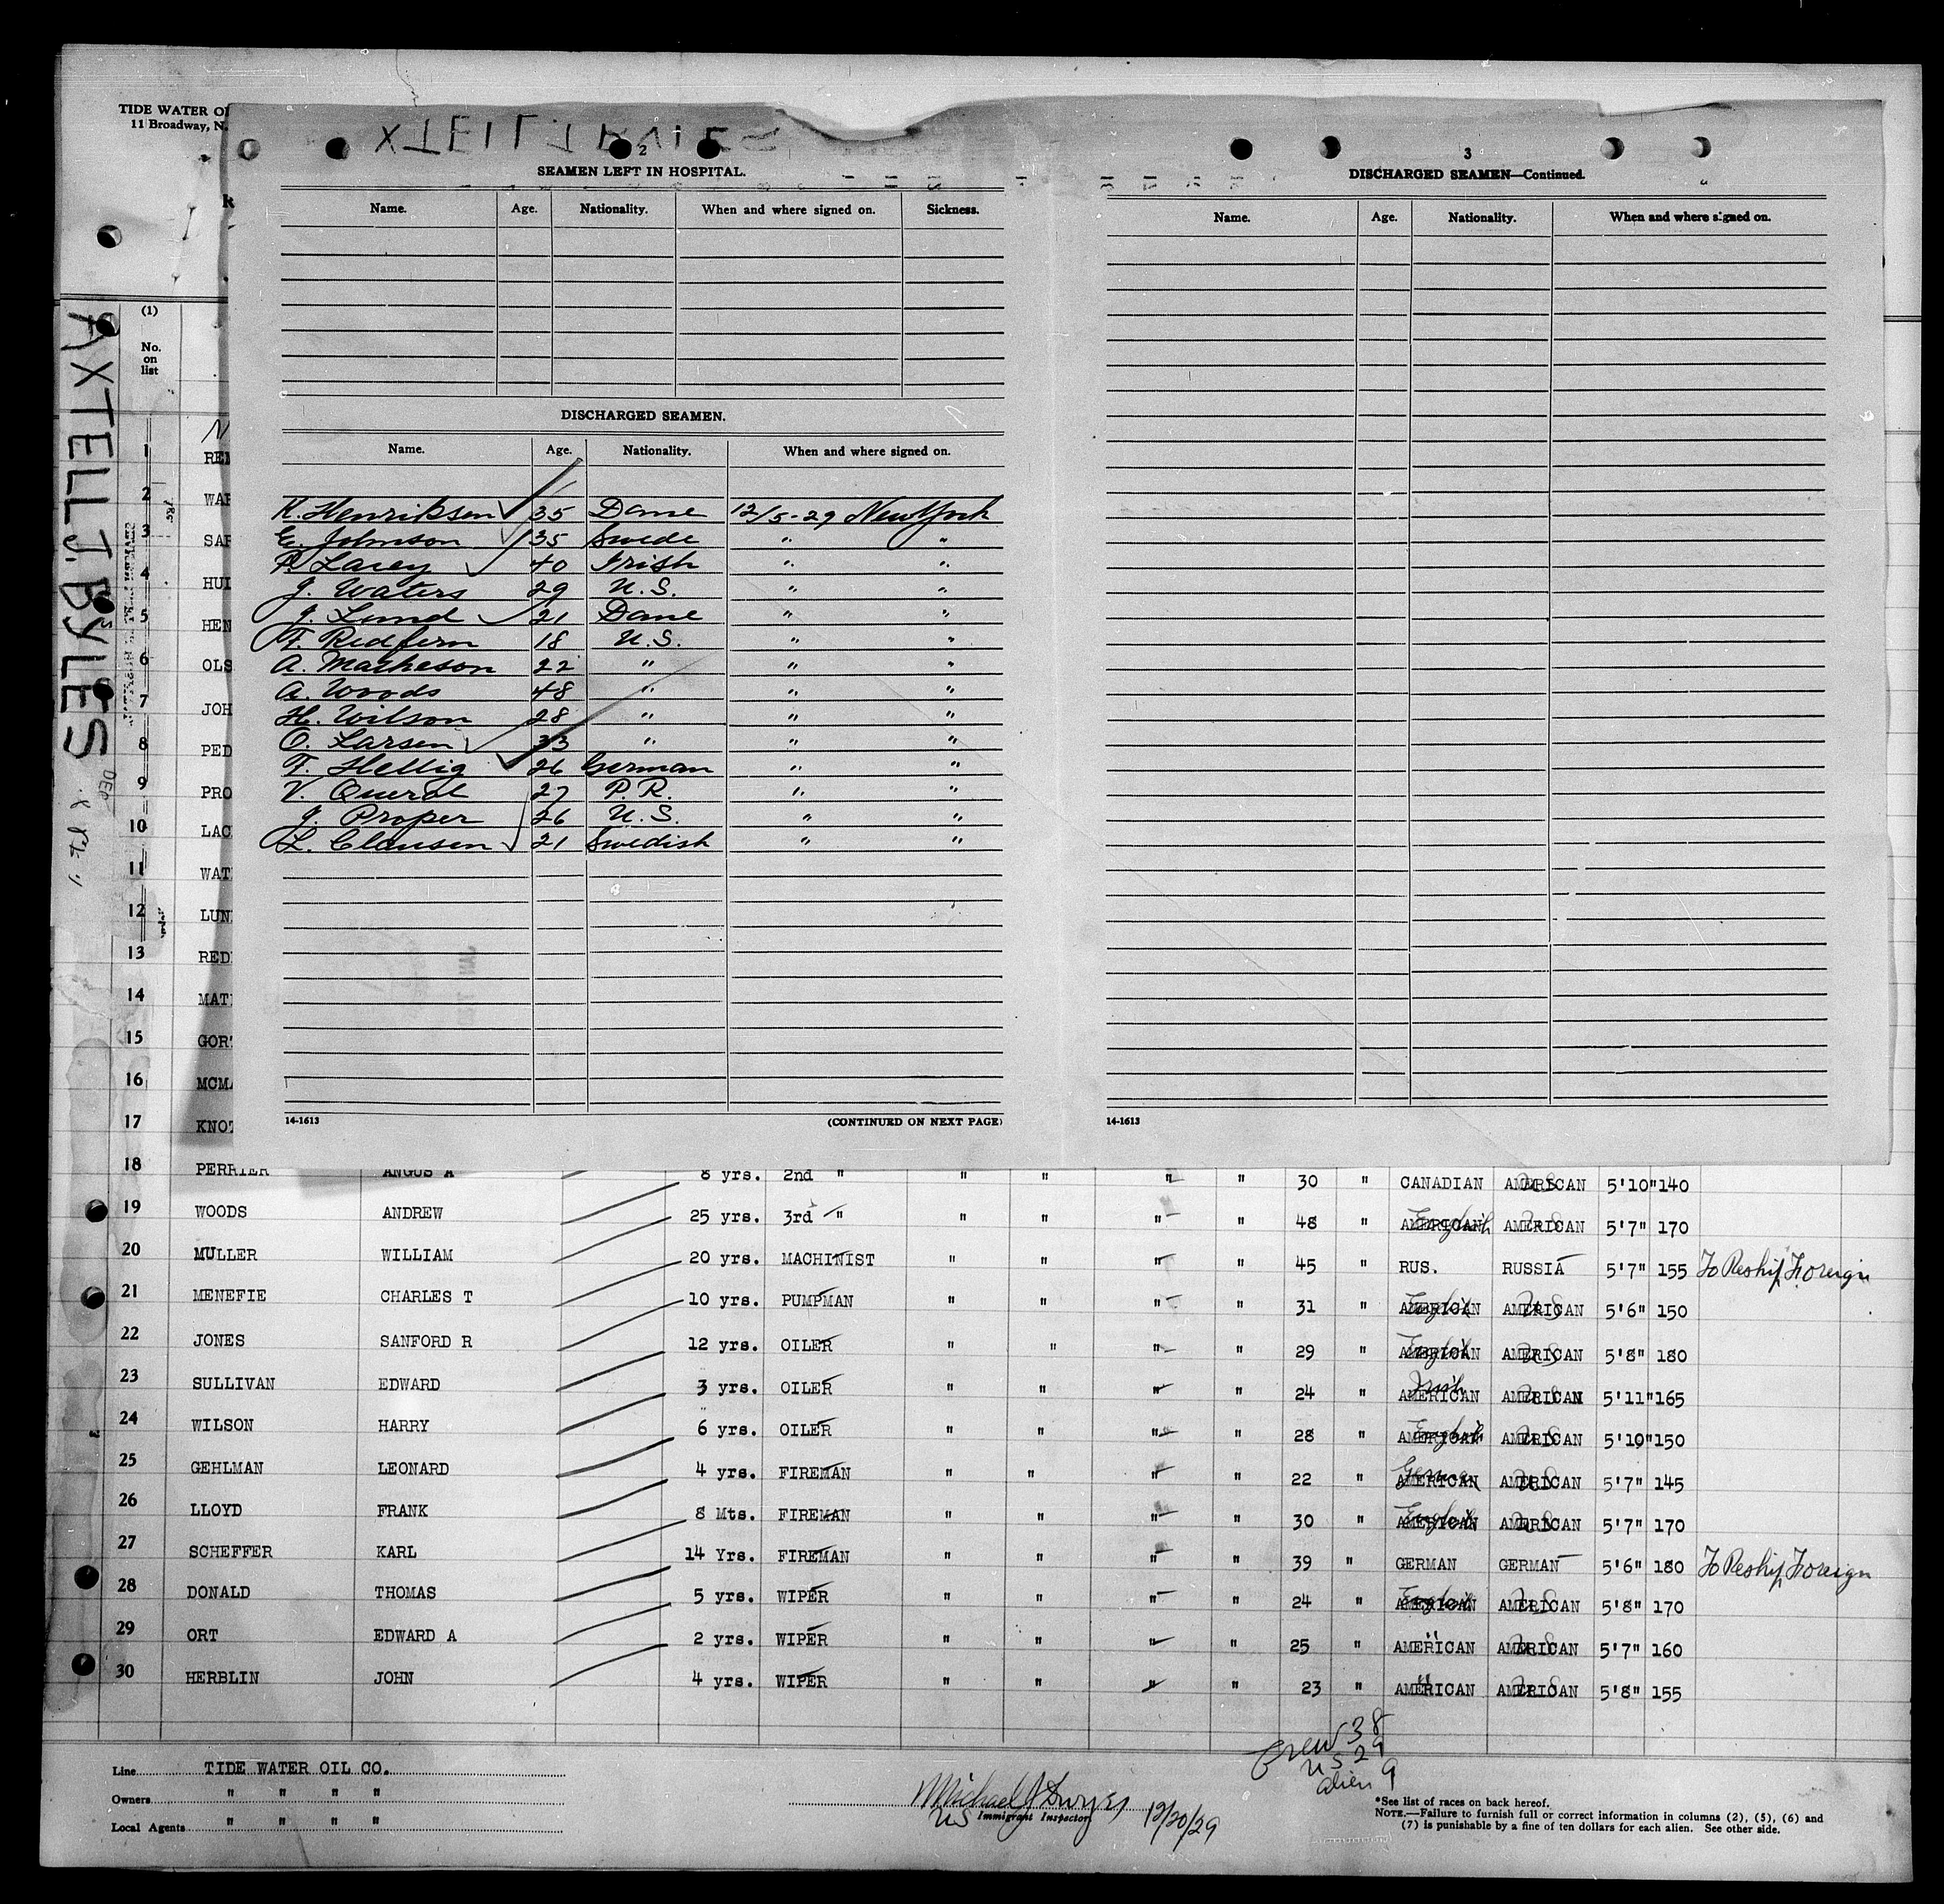 TIDE WATER OI
11 Broadway, N.
AXTELL J. BYLES
(1)
No.
on
list
2
SEAMEN LEFT IN HOSPITAL.
Name. Age. Nationality. When and where signed on. Sickness.
DISCHARGED SEAMEN.
Name. Age. Nationality. When and where signed on.
K. Henriksen 35 Dane 12/5-29 New York
E. Johnson 35 Swede " "
P. Lacey 40 Irish " "
J. Waters 29 U.S. " "
J. Lund 21 Dane " "
F. Redfern 18 U.S. " "
A. Matheson 22 " " "
A. Woods 48 " " "
H. Wilson 28 " " "
O. Larsen 33 " " "
F. Hellig 26 German " "
V. Querol 27 P.R. " "
J. Proper 26 U.S. " "
L. Clausen 21 Swedish " "
14-1613 (CONTINUED ON NEXT PAGE)
3
DISCHARGED SEAMEN—Continued.
Name. Age. Nationality. When and where signed on.
14-1613
1 REM
2 WAR
3 SAR
4 HUI
5 HEN
6 OLS
7 JOH
8 PED
9 PRO
10 LAC
11 WAT
12 LUN
13 RED
14 MAT
15 GOR
16 MCM
17 KNOT
18 PERRIER ANGUS A 8 yrs. 2nd " " " " " 30 " CANADIAN AMERICAN 5'10" 140
19 WOODS ANDREW 25 yrs. 3rd " " " " " 48 " AMERICAN English AMERICAN U.S. 5'7" 170
20 MULLER WILLIAM 20 yrs. MACHINIST " " " " 45 " RUS. RUSSIA 5'7" 155 To Reship Foreign
21 MENEFIE CHARLES T 10 yrs. PUMPMAN " " " " 31 " AMERICAN English AMERICAN U.S. 5'6" 150
22 JONES SANFORD R 12 yrs. OILER " " " " 29 " AMERICAN English AMERICAN U.S. 5'8" 180
23 SULLIVAN EDWARD 3 yrs. OILER " " " " 24 " AMERICAN Irish AMERICAN U.S. 5'11" 165
24 WILSON HARRY 6 yrs. OILER " " " " 28 " AMERICAN English AMERICAN U.S. 5'10" 150
25 GEHLMAN LEONARD 4 yrs. FIREMAN " " " " 22 " AMERICAN German AMERICAN U.S. 5'7" 145
26 LLOYD FRANK 8 Mts. FIREMAN " " " " 30 " AMERICAN English AMERICAN U.S. 5'7" 170
27 SCHEFFER KARL 14 Yrs. FIREMAN " " " " 39 " GERMAN GERMAN 5'6" 180 To Reship Foreign
28 DONALD THOMAS 5 yrs. WIPER " " " " 24 " AMERICAN English AMERICAN U.S. 5'8" 170
29 ORT EDWARD A 2 yrs. WIPER " " " " 25 " AMERICAN " AMERICAN U.S. 5'7" 160
30 HERBLIN JOHN 4 yrs. WIPER " " " " 23 " AMERICAN " AMERICAN U.S. 5'8" 155
Crew 38
US 29
alien 9
Line TIDE WATER OIL CO.
Owners " " " "
Local Agents " " " "
Michael J Dwyer
US Immigrant Inspector 12/20/29
*See list of races on back hereof.
NOTE.—Failure to furnish full or correct information in columns (2), (5), (6) and
(7) is punishable by a fine of ten dollars for each alien. See other side.